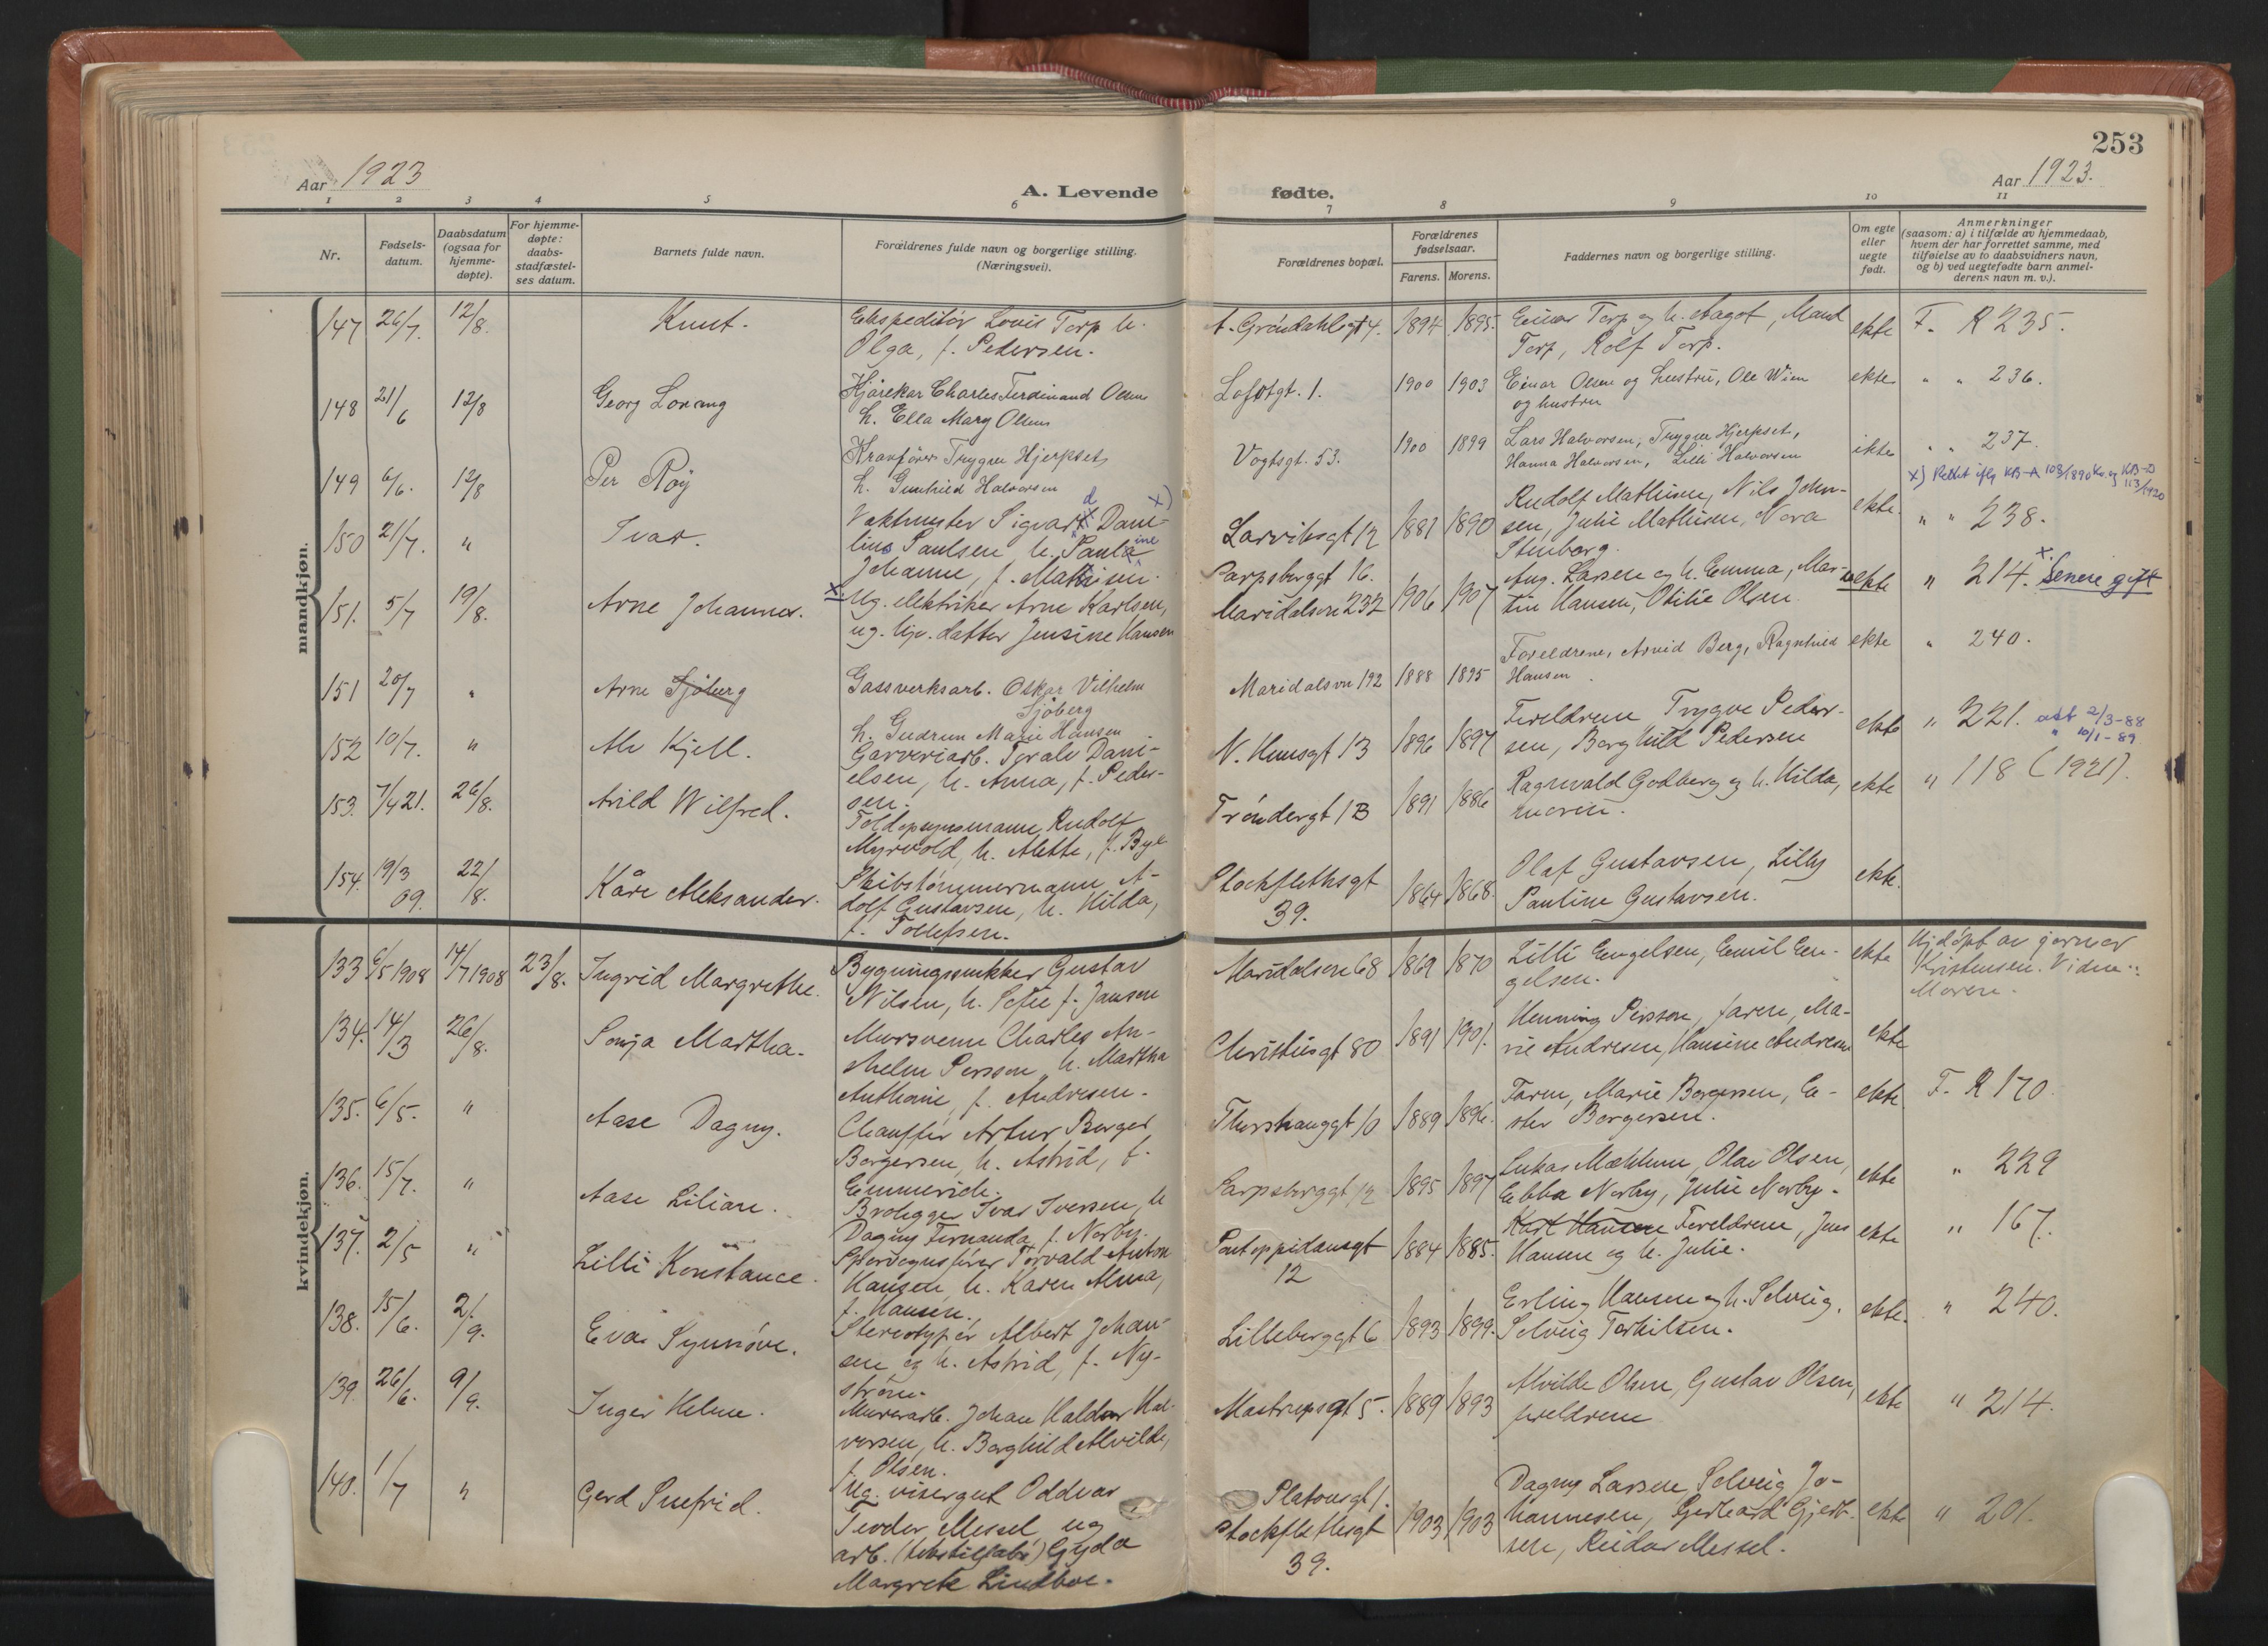 253
Aar 1923
A. Levende fødte.
Aar 1923.
1 2 3 4 5 6 7 8 9 10 11
Nr.
Fødsels-
datum.
Daabsdatum
(ogsaa for
hjemme-
døpte).
For hjemme-
døpte:
daabs-
stadfæstel-
ses datum.
Barnets fulde navn.
Forældrenes fulde navn og borgerlige stilling.
(Næringsvei).
Forældrenes bopæl.
Forældrenes
fødselsaar.
Farens. Morens.
Faddernes navn og borgerlige stilling.
Om egte
eller
uegte
født.
Anmerkninger
(saasom: a) i tilfælde av hjemmedaab,
hvem der har forrettet samme, med
tilføielse av to daabsvidners navn,
og b) ved uegtefødte barn anmel-
derens navn m. v.).
mandkjøn.
147 26/7. 12/8. Knut.
Ekspeditör Lovis Torp h.
Olga, f. Pedersen.
A. Gröndahlsgt 4. 1894 1895.
Einar Torp og h. Aagot, Maud
Torp, Rolf Torp.
ekte F. R 235.
148 21/6 12/8 Georg Loreng
Hjörekar Charles Ferdinand Olsen
h. Ella Mary Olsen
Lofotgt. 1. 1900 1903
Einar Olsen og hustru, Ole Wien
og hustru
ekte " " 236.
149 6/6. 12/8 Per Röy
Kranförer Trygve Hjerpset
h. Gunhild Halvorsen
Vogtsgt. 53. 1900 1899
Lars Halvorsen, Trygve Hjerpset,
Hanna Halvorsen, Lilli Halvorsen
ekte " " 237.
x) Rettet iflg KB-A 108/1890 og KB-D 113/1920
150 21/7. " Ivar.
Vaktmester Sigvard Dani- x)
lius Paulsen h. Pauline
Johanne, f. Mathisen.
Larviksgt 12 1887 1890
Rudolf Mathisen, Nils John-
sen, Julie Mathisen, Nora
Stenberg.
ekte. " " 238.
151. 5/7 19/8. Arne Johannes.
x Ug. elektriker Arne Karlsen,
ug. hjv. datter Jensine Hansen
Sarpsborggt 16.
Maridalsvn 232 1906 1907
Aug. Larsen og h. Emma, Mar-
tin Hansen, Otilie Olsen.
uekte " 214. x. Senere gift
151 20/7 " Arne Sjöberg
Gassverksarb. Oskar Vilhelm
Sjöberg
h. Gudrun Marie Hansen
Maridalsvn 192 1888 1895
Foreldrene, Arvid Berg, Ragnhild
Hansen.
ekte " 240.
152 10/7. " Alv Kjell.
Garveriarb. Toralv Dani-
elsen, h. Anna, f. Peder-
sen.
N. Huusgt 13 1896 1897
Foreldrene Trygve Peder-
sen, Borghild Pedersen
ekte " 221. att 2/3-88
" 10/1-89
153. 7/4 21. 26/8. Arild Wilfred.
Toldopsynsmann Rudolf
Myrvold, h. Alette, f. Bye
Tröndergt 1B 1891 1886
Ragnvald Godberg og h. Hilda,
moren.
ekte " 118 (1921).
154. 19/3 09. 22/8. Kåre Aleksander.
Skibstömmermann A-
dolf Gustavsen, h. Hilda,
f. Tollefsen.
Stockflethsgt
39. 1864 1868.
Olaf Gustavsen, Lilly
Pauline Gustavsen.
ekte.
kvindekjøn.
133 6/5 1908 14/7 1908 23/8. Ingrid Margrethe.
Bygningssnekker Gustav
Nilsen, h. Sofie f. Jansen
Maridalsvn 68 1869 1870
Lilli Engelsen, Emil En-
gelsen.
ekte
Hjdöpt av jormor
Kristensen. Vidne:
Moren.
134. 14/3 26/8. Sonja Martha.
Mursvenn Charles An-
shelm Persson h. Martha
Anthonie, f. Andresen.
Christiesgt 80 1891 1901.
Henning Persson, faren, Ma-
rie Andresen, Hansine Andresen
ekte
135. 6/5. " Aase Dagny.
Chauffér Artur Borger
Borgersen, h. Astrid, f.
Emmerich.
Thorshauggt 10 1889 1896.
Faren, Marie Borgersen, Es-
ter Borgersen.
ekte F. R 170.
136. 15/7. " Aase Lilian.
Brolegger Ivar Iversen, h
Dagny Fernanda, f. Norby.
Sarpsborggt 12 1895 1897
Lukas Mæhlum, Olai Olsen,
Ebba Norby, Julie Norby.
ekte " 229
137. 2/5 " Lilli Konstance.
Sporvognsförer Torvald Anton
Hansen, h. Karen Alma,
f. Hansen.
Pontoppidansgt
12 1884 1885.
Karl Hansen Foreldrene, Jens
Hansen og h. Julie.
ekte " 167.
138. 15/6. 2/9. Eva Synnöve.
Stereotypör Albert Johan-
sen og h. Astrid, f. Ny-
ström.
Lilleborggt 6 1893 1899.
Erling Hansen og h. Solveig,
Solveig Torkilsen.
ekte. " 240.
139. 26/6. 9/9. Inger Helene.
Murerarb. Johan Haldor Hal-
vorsen, h. Borghild Alvilde,
f. Olsen.
Mastrupsgt 5. 1889 1893
Alvilde Olsen, Gustav Olsen,
foreldrene
ekte " 214.
140. 1/7 " Gerd Snefrid.
Ug. visergut Oddvar
Teodor Messel ug
arb. (tekstilfabr.) Gyda
Margrete Lindboe.
Platousgt 1.
Stockflethsgt
39. 1903 1903
Dagny Larsen, Solveig Jo-
hannesen, Gerhard Gjert-
sen, Reidar Messel.
ekte " 201.